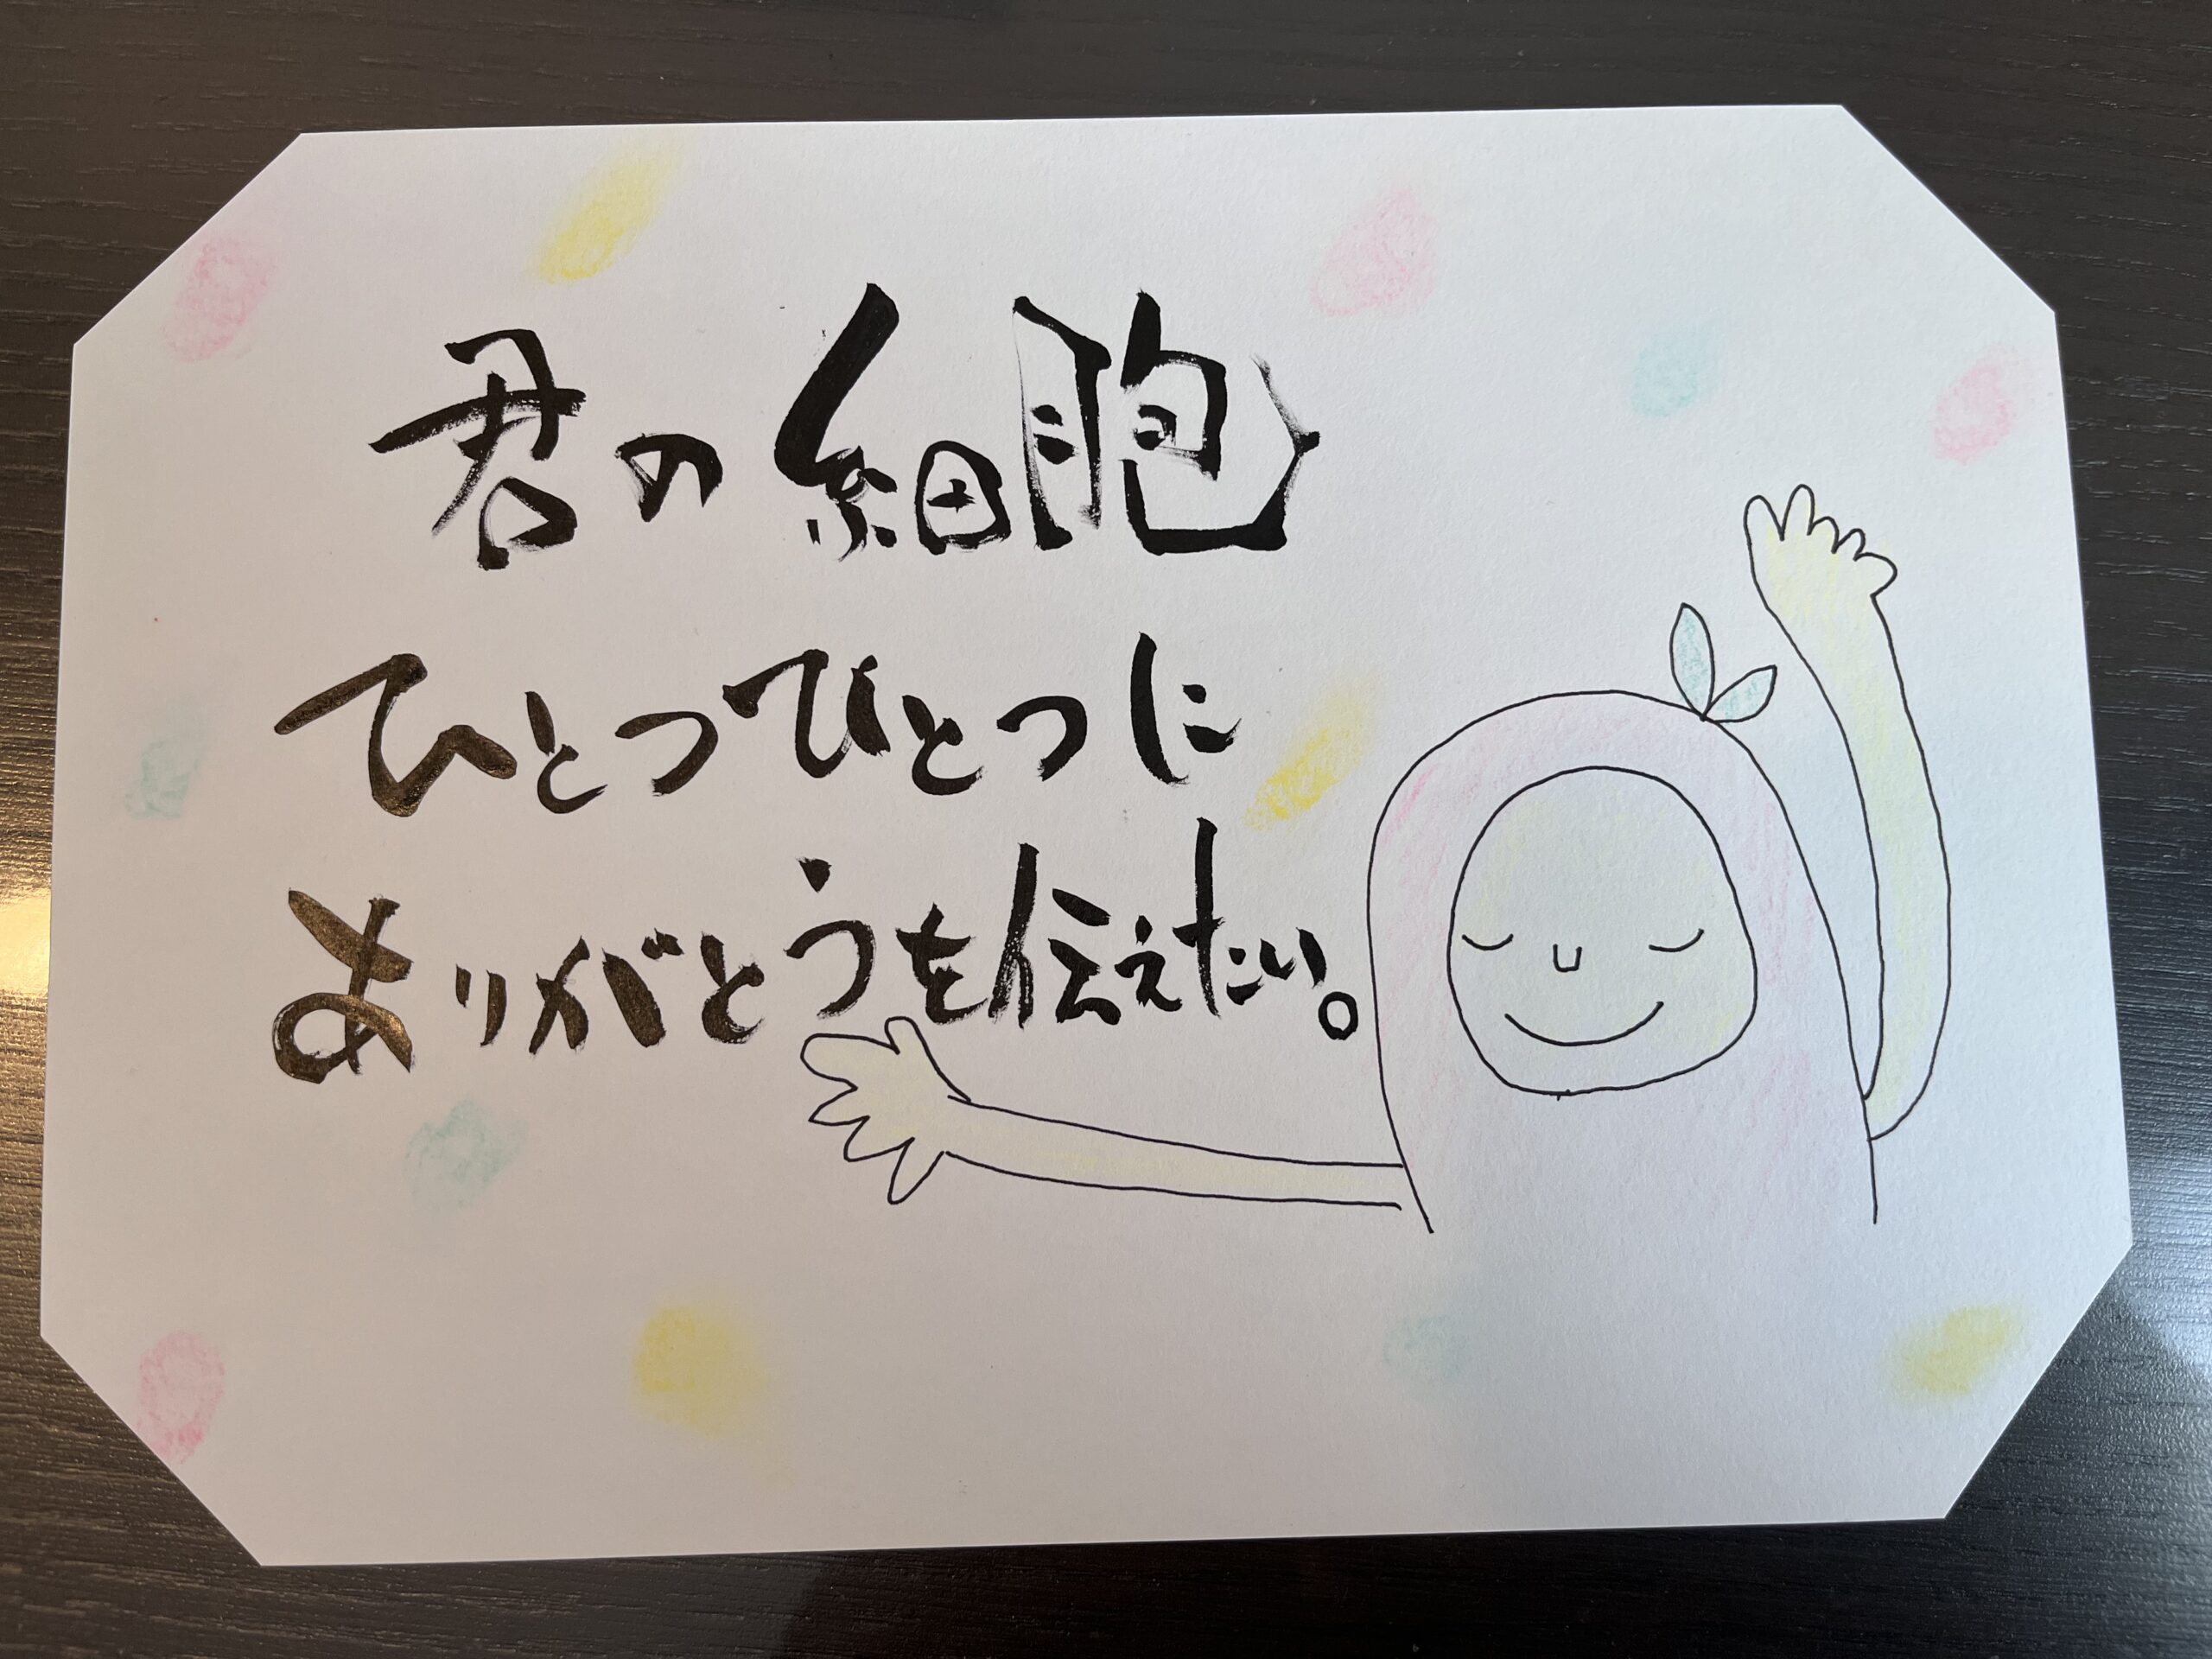 君の細胞
ひとつひとつに
ありがとうを伝えたい。